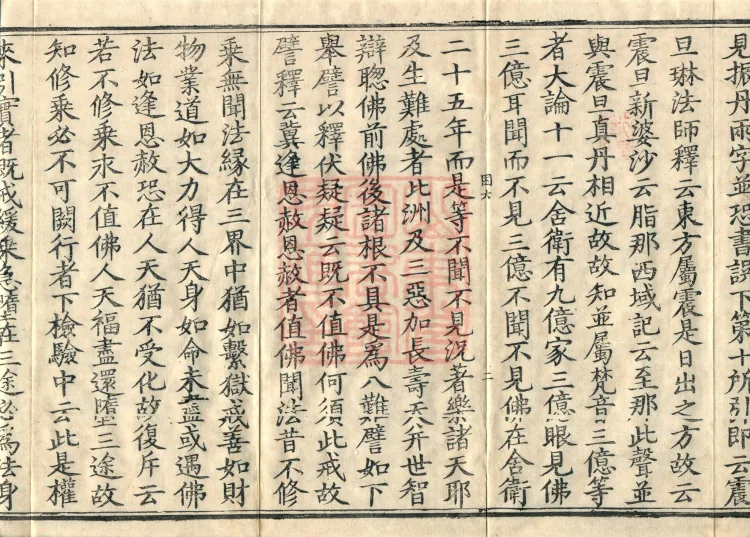 見振丹兩字並恐書誤下第十所引師云震
旦琳法師釋云東方屬震是日出之方故云
震旦新婆沙云脂那西域記云至那此聲並
與震旦真丹相近故故知並屬梵音三億等
者大論十一云舍衛有九億家三億眼見佛
三億耳聞而不見三億不聞不見佛在舍衛
二十五年而是等不聞不見況著樂諸天耶
田六
二
及生難處者此洲及三惡加長壽天并世智
辯聰佛前佛後諸根不具是為八難譬如下
舉譬以釋伏疑疑云既不值佛何須此戒故
譬釋云冀逢恩赦恩赦者值佛聞法昔不修
乘無聞法緣在三界中猶如繫獄戒善如財
物業道如大力得人天身如命未盡或遇佛
法如逢恩赦恐在人天猶不受化故復斥云
若不修乘永不值佛人天福盡還墮三途故
知修乘必不可闕行者下檢驗中云此是權
來引實者既戒緩乘急墮在三途必為法身